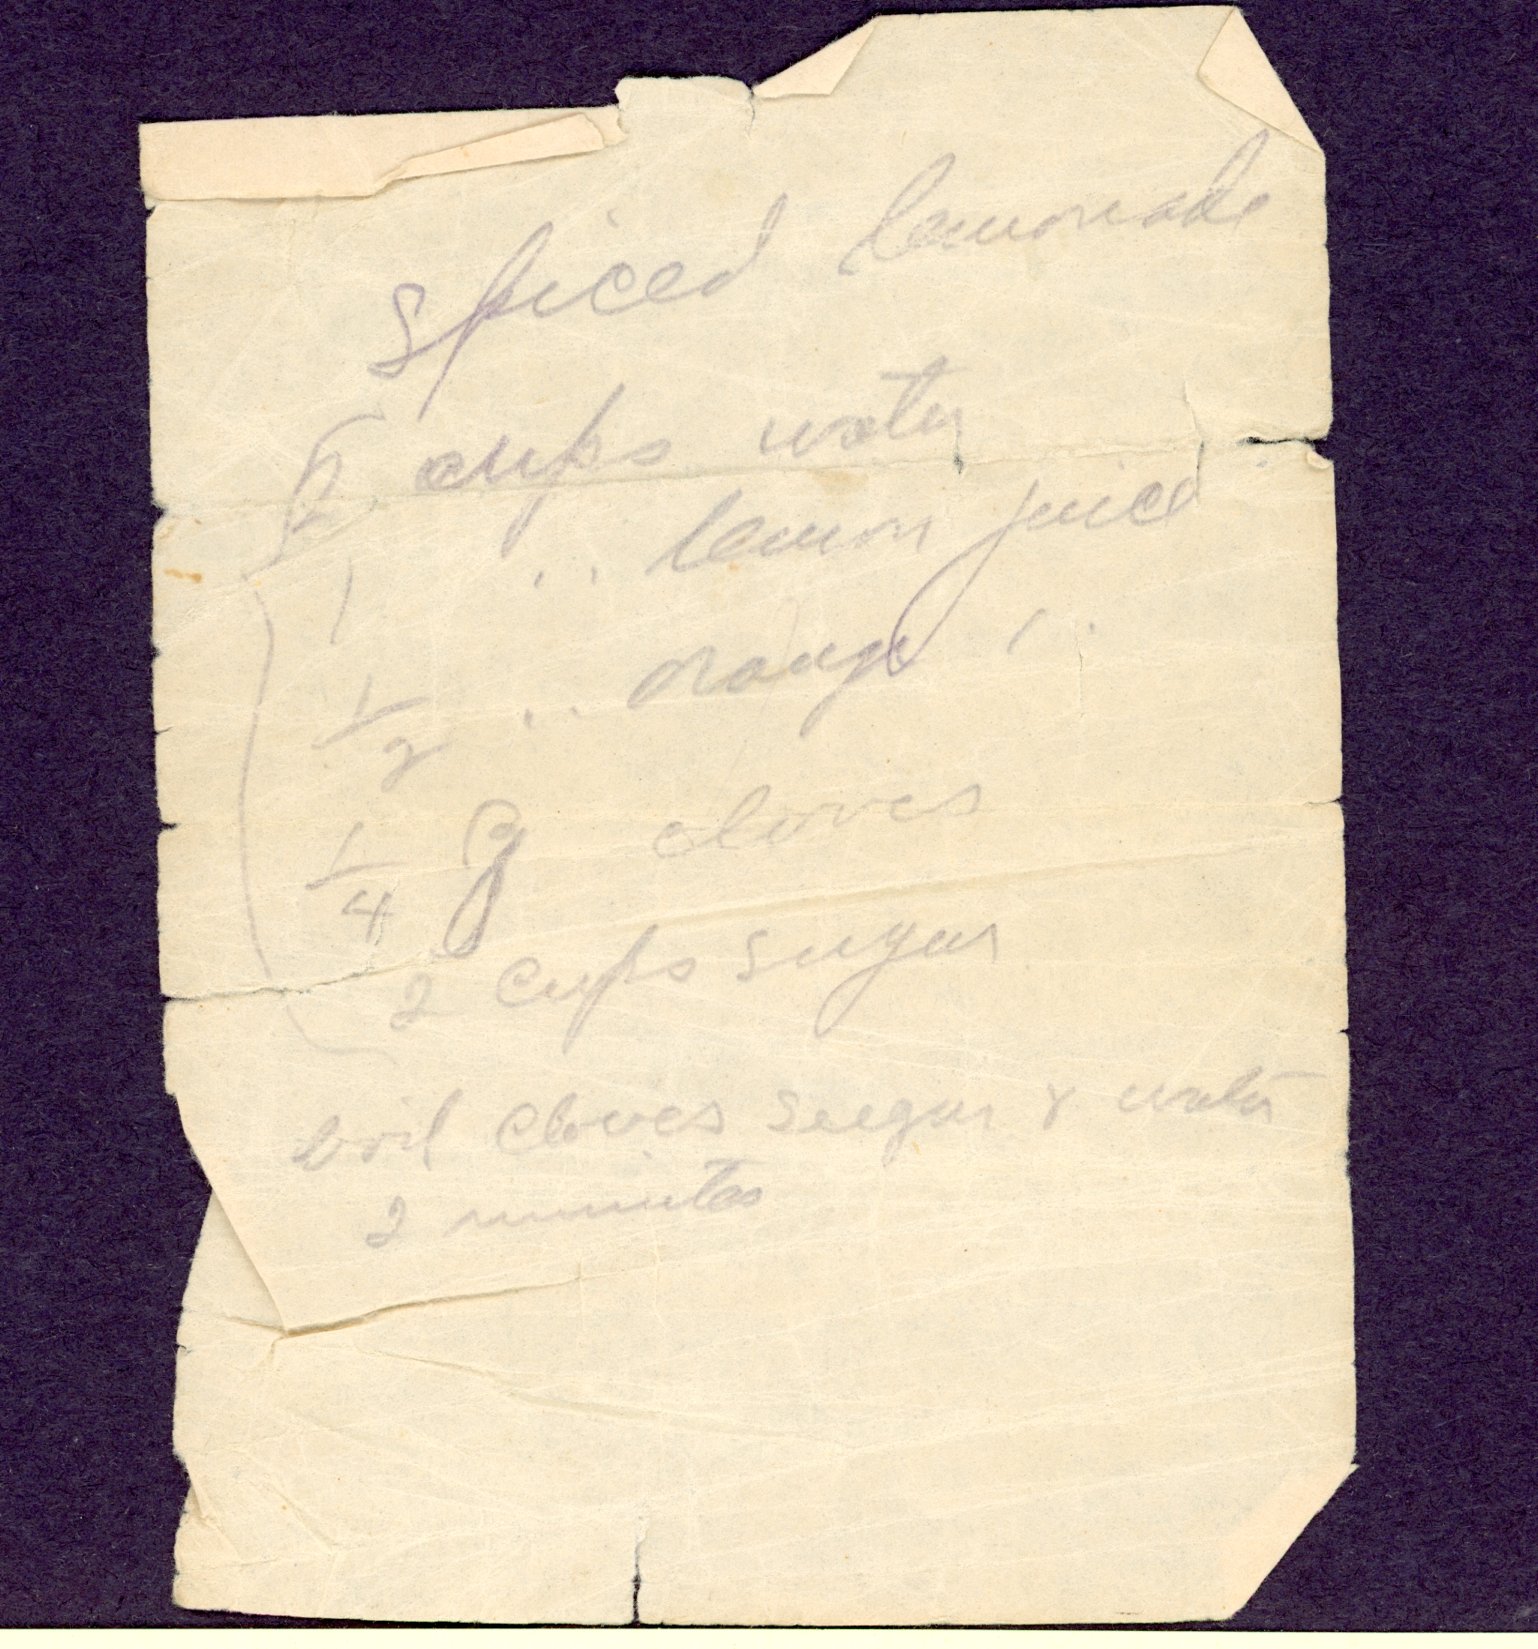 Spiced lemonade
2 cups water
1 " lemon juice
1/2 " orange "
1/4 cloves
2 cups sugar
boil cloves sugar & water
2 minutes